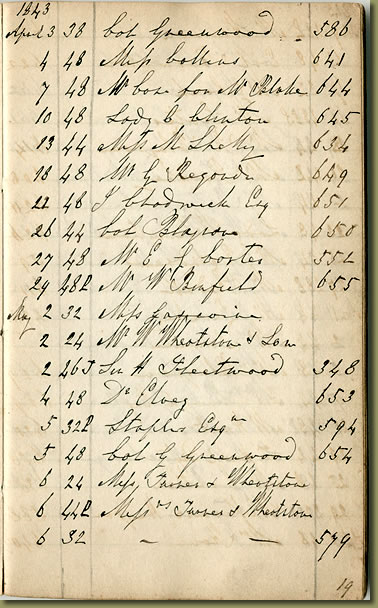 1843
April 3 38 Col Greenwood 586
4 48 Miss Collins 641
7 48 Mr Case for Mr Blake 644
10 48 Lady C Clinton 645
13 44 Miss M Shelly 634
18 48 Mr G Regondi 649
22 48 J Chadwick Esq 651
26 44 Col Blagrave 650
27 48 Mr E G 552
29 48P Mr W Binfield 655
May 2 32 Miss
2 24 Mr W Wheatstone & Son
2 26 Sir H Fleetwood 348
4 48 Dr 653
5 32P Staples Esqre 594
5 48 Col G Greenwood 654
6 24 Mess Turner & Wheatstone
6 44P Messrs Turner & Wheatstone
6 32 – – 579
19